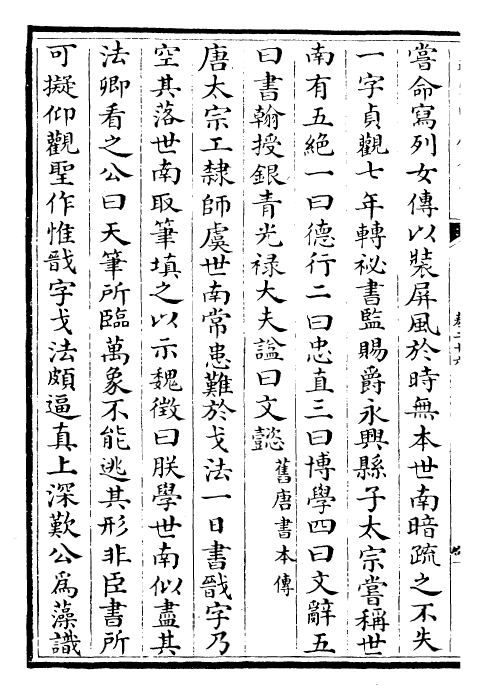 嘗命寫列女傳以裝屏風於時無本世南暗疏之不失
一字貞觀七年轉祕書監賜爵永興縣子太宗嘗稱世
南有五絕一曰德行二曰忠直三曰博學四曰文辭五
曰書翰授銀青光禄大夫諡曰文懿舊唐書本傳
唐太宗工隸師虞世南常患難於戈法一日書戬字乃
空其落世南取筆填之以示魏徵曰朕學世南似盡其
法卿看之公曰天筆所臨萬象不能逃其形非臣書所
可擬仰觀聖作惟戬字戈法頗逼真上深歎公為藻識